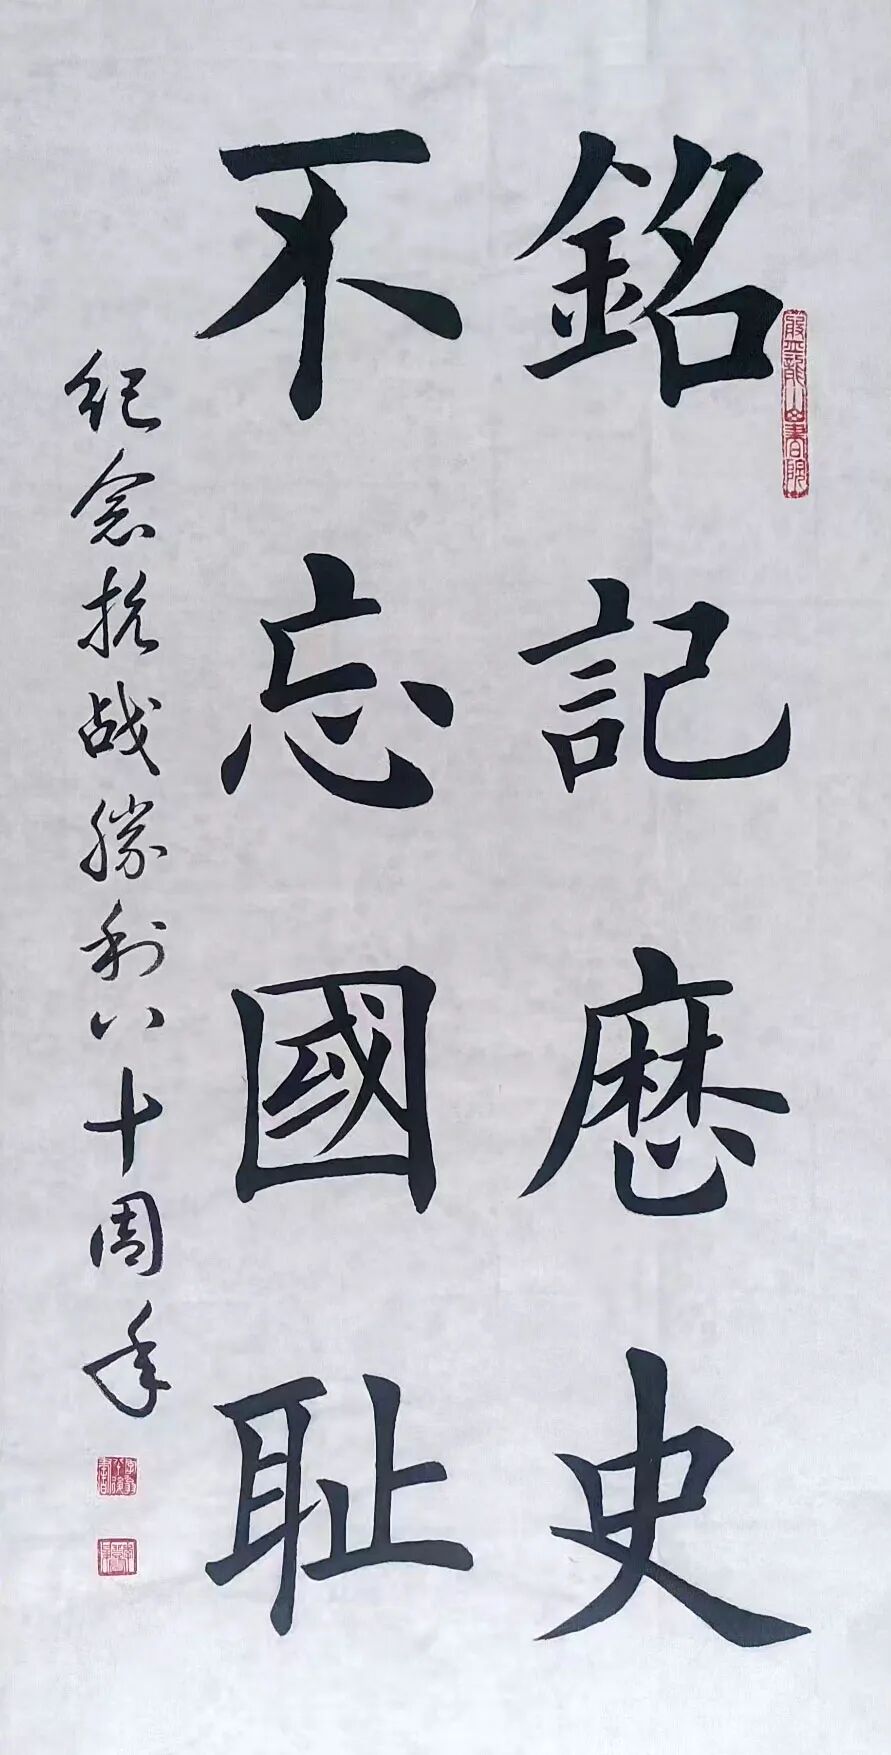 銘記歷史
不忘國耻
纪念抗战勝利八十周年